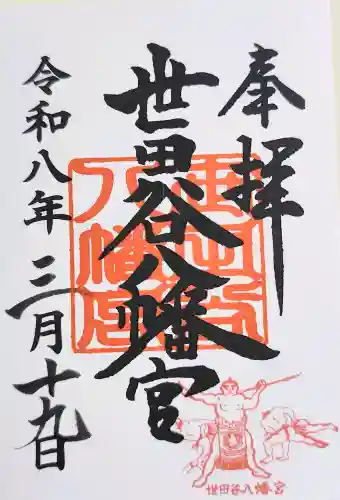 奉拝
世田谷八幡宮
令和八年三月十九日
世田谷八幡宮
世田谷八幡宮